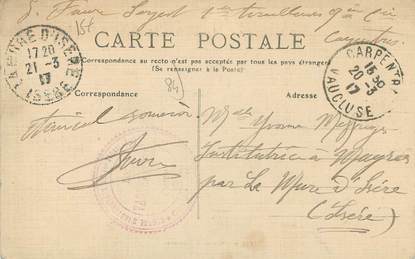 S. Faure Sergent 1er tirailleurs 9e Cie
Carpentras
15f
LA MURE D'ISERE
17 20
21 -3
17
ISERE
CARTE POSTALE
Correspondance au recto n'est pas accepté par tous les pays étrangers
(Se renseigner à la Poste)
84
CARPENTRAS
15 30
20 -3
17
VAUCLUSE
Correspondance
Adresse
Amical souvenir
Faure
Melle Yvonne
Institutrice à Mayres
par La Mure d'Isère
(Isère)